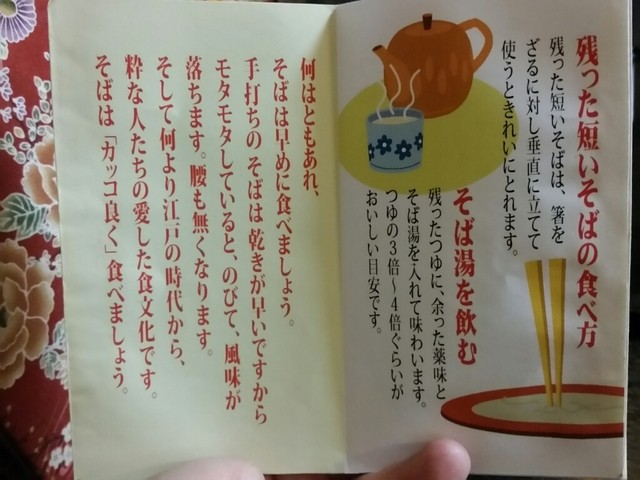 残った短いそばの食べ方
残った短いそばは、箸を
ざるに対し垂直に立てて
使うときれいにとれます。
そば湯を飲む
残ったつゆに、余った薬味と
そば湯を入れて味わいます。
つゆの3倍～4倍ぐらいが
おいしい目安です。
何はともあれ、
そばは早めに食べましょう。
手打ちの そばは 乾きが早いですから
モタモタしていると、のびて、風味が
落ちます。腰も無くなります。
そして何より江戸の時代から、
粋な人たちの愛した食文化です。
そばは「カッコ良く」食べましょう。